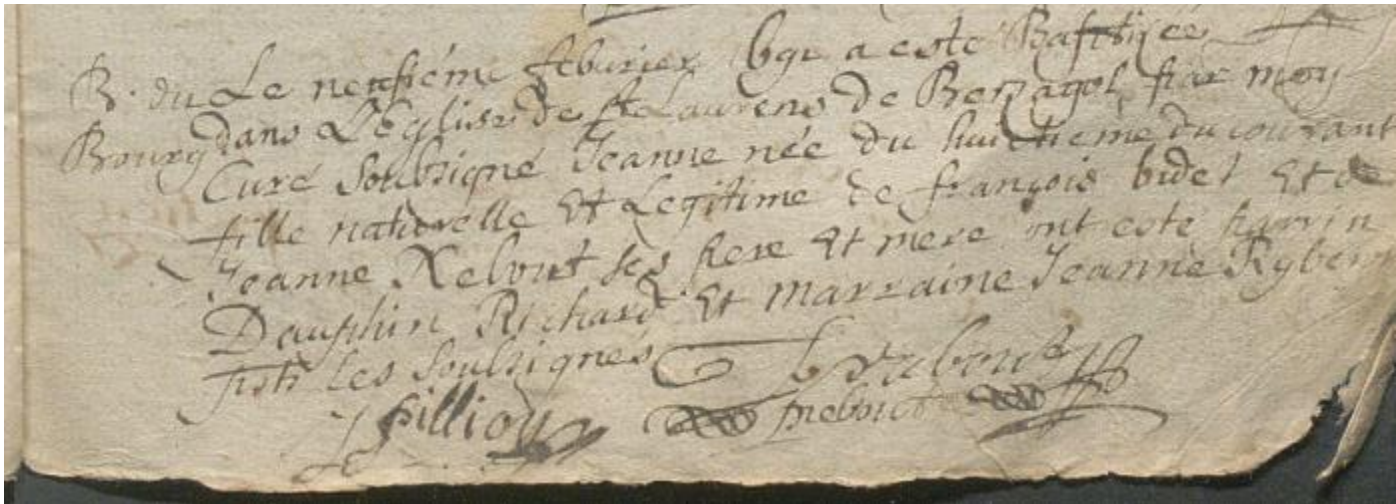 B. du Le neufiéme febvrier a esté Baptizée
Bourg dans L'Eglise de St Laurens de Berzagol par moy
Curé soubsigné Jeanne née du huictieme du courant
fille naturelle et Legitime de françois bidet et de
Jeanne Nebout ses pere et mere ont esté parrin
Dauphin Richard et marraine Jeanne
les soubsignés
nebout